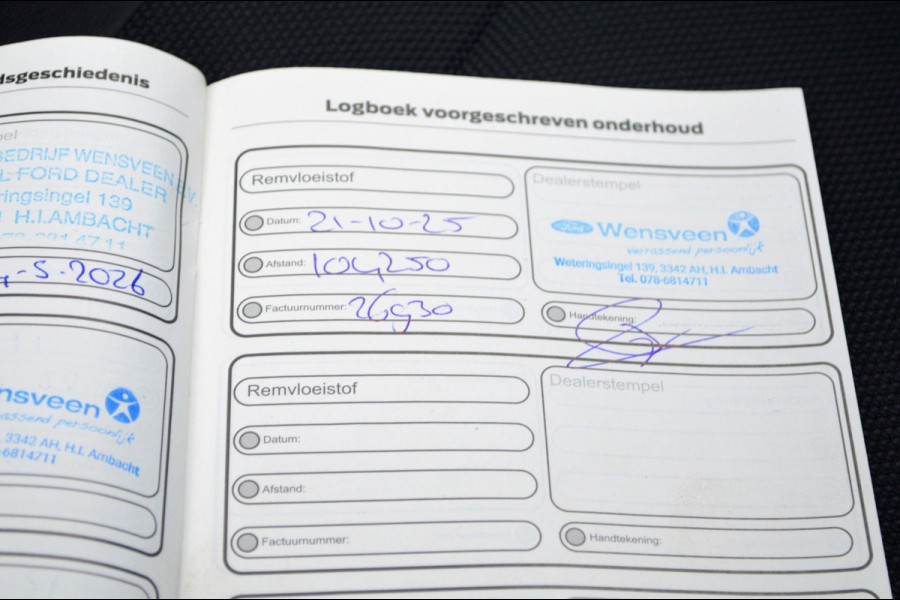 dsgeschiedenis
pel
BEDRIJF WENSVEEN B.V.
L-FORD DEALER
ringsingel 139
H.I.AMBACHT
-5-2026
nsveen
assend persoonlijk
3342 AH, H.I. Ambacht
-6814711
Logboek voorgeschreven onderhoud
Remvloeistof
Datum: 21-10-25
Afstand: 104250
Factuurnummer: 26930
Dealerstempel
Ford Wensveen
verrassend persoonlijk
Weteringsingel 139, 3342 AH, H.I. Ambacht
Tel. 078-6814711
Handtekening:
Remvloeistof
Datum:
Afstand:
Factuurnummer:
Dealerstempel
Handtekening: